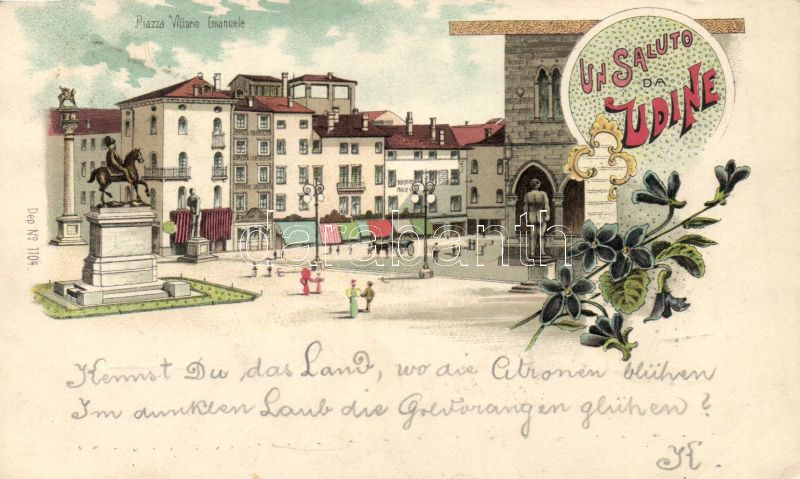 Piazza Vittorio Emanuele
UN SALUTO
DA
UDINE
Dep Nº 1104
darabanth
Kennst Du das Land, wo die Citronen blühen
Im dunklen Laub die Goldorangen glühen?
. . . . . . . . . . . . . . . . . .
K.